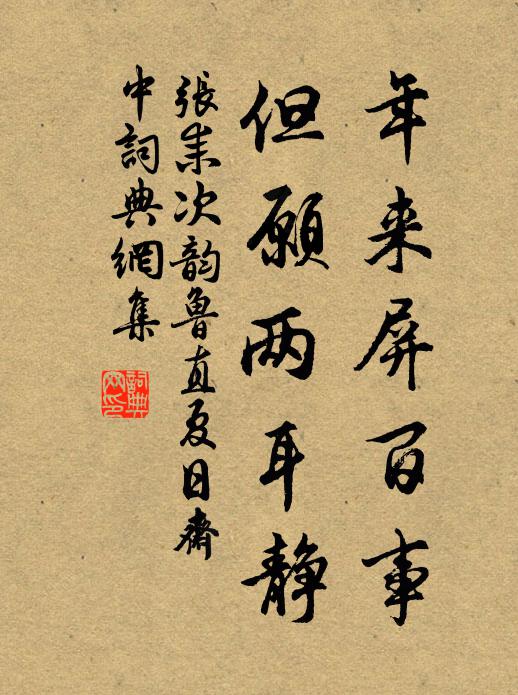 年来屏百事
但願两耳静
張耒次韵魯直夏日齋
中詞典網集
詞典網印